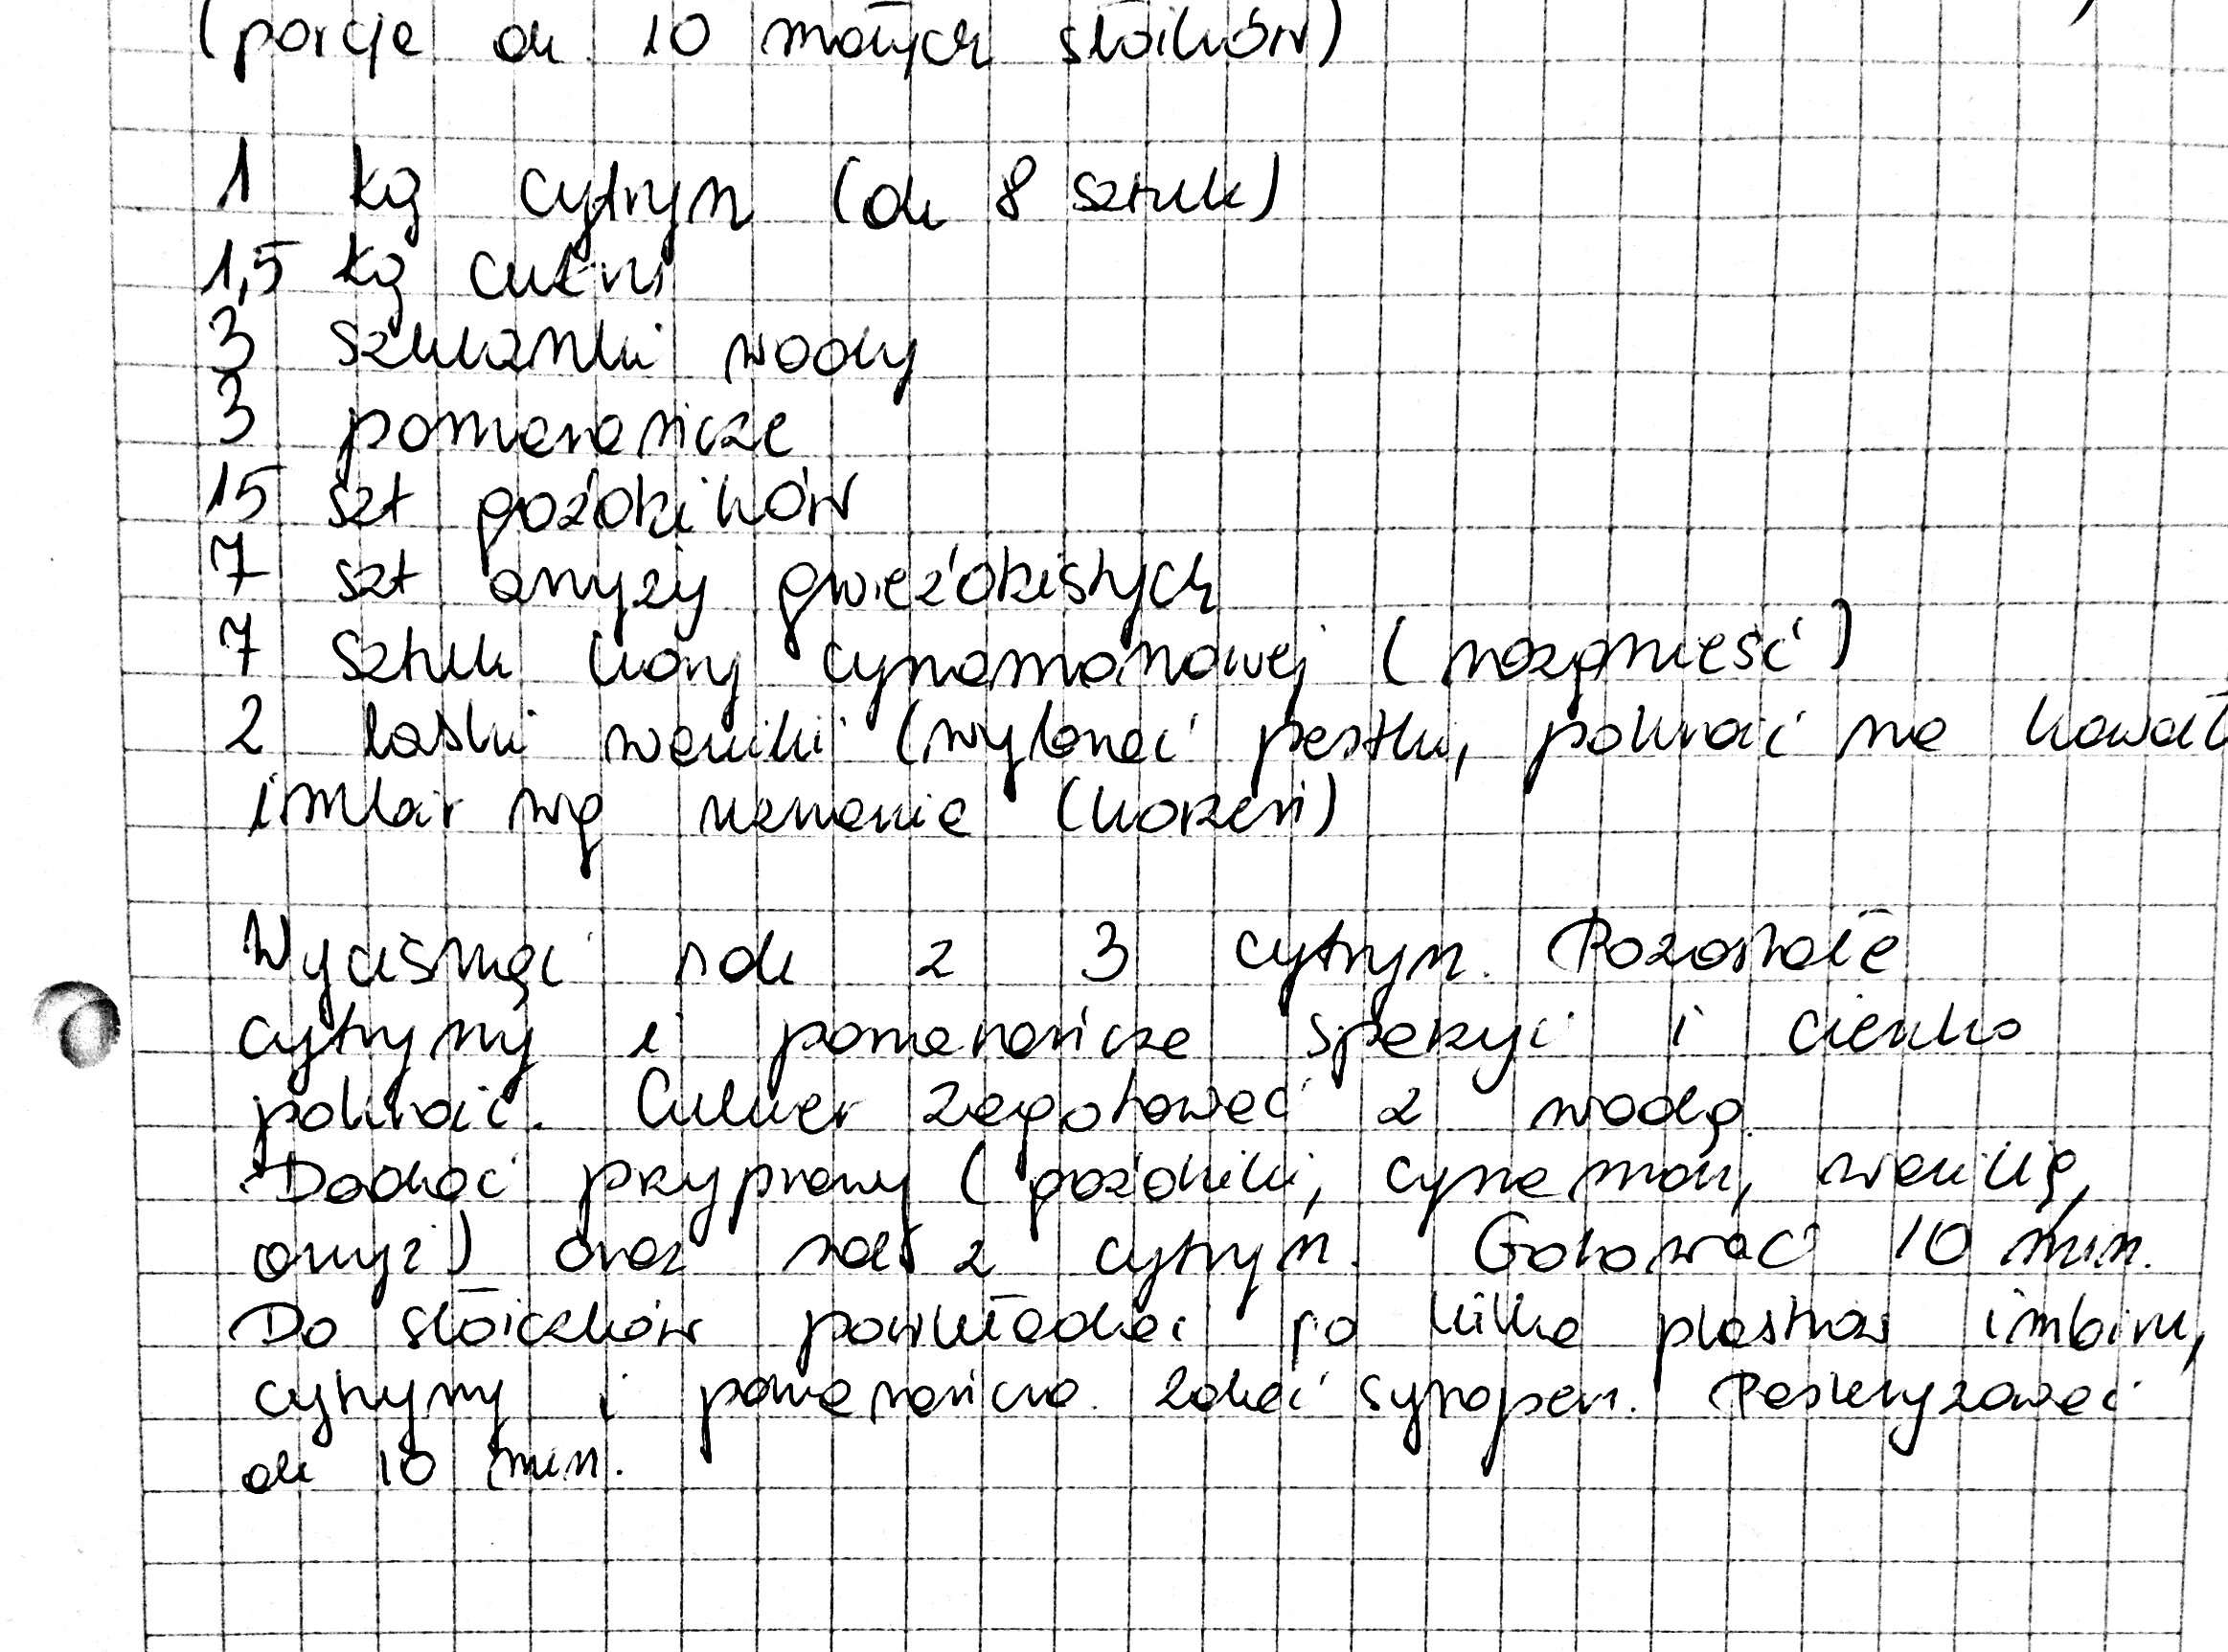 (porcje ok. 10 małych słoików)
1 kg cytryn (ok 8 sztuk)
1,5 kg cukru
3 szklanki wody
3 pomarańcze
15 szt goździków
7 szt anyży gwieździstych
7 sztuk kory cynamonowej (rozgnieść)
2 laski wanilii (wyłonać pestki, pokroić na kawał
imbir wg uznania (korzeń)
Wycisnąć sok z 3 cytryn. Pozostałe
cytryny i pomarańcze sparzyć i cienko
pokroić. Cukier zagotować z wodą.
Dodać przyprawy (goździki, cynamon, wanilię,
anyż) oraz sok z cytryn. Gotować 10 min.
Do słoiczków powkładać po kilka plastrów imbiru,
cytryny i pomarańcza. Zalać syropem. Pasteryzować
ok 10 min.